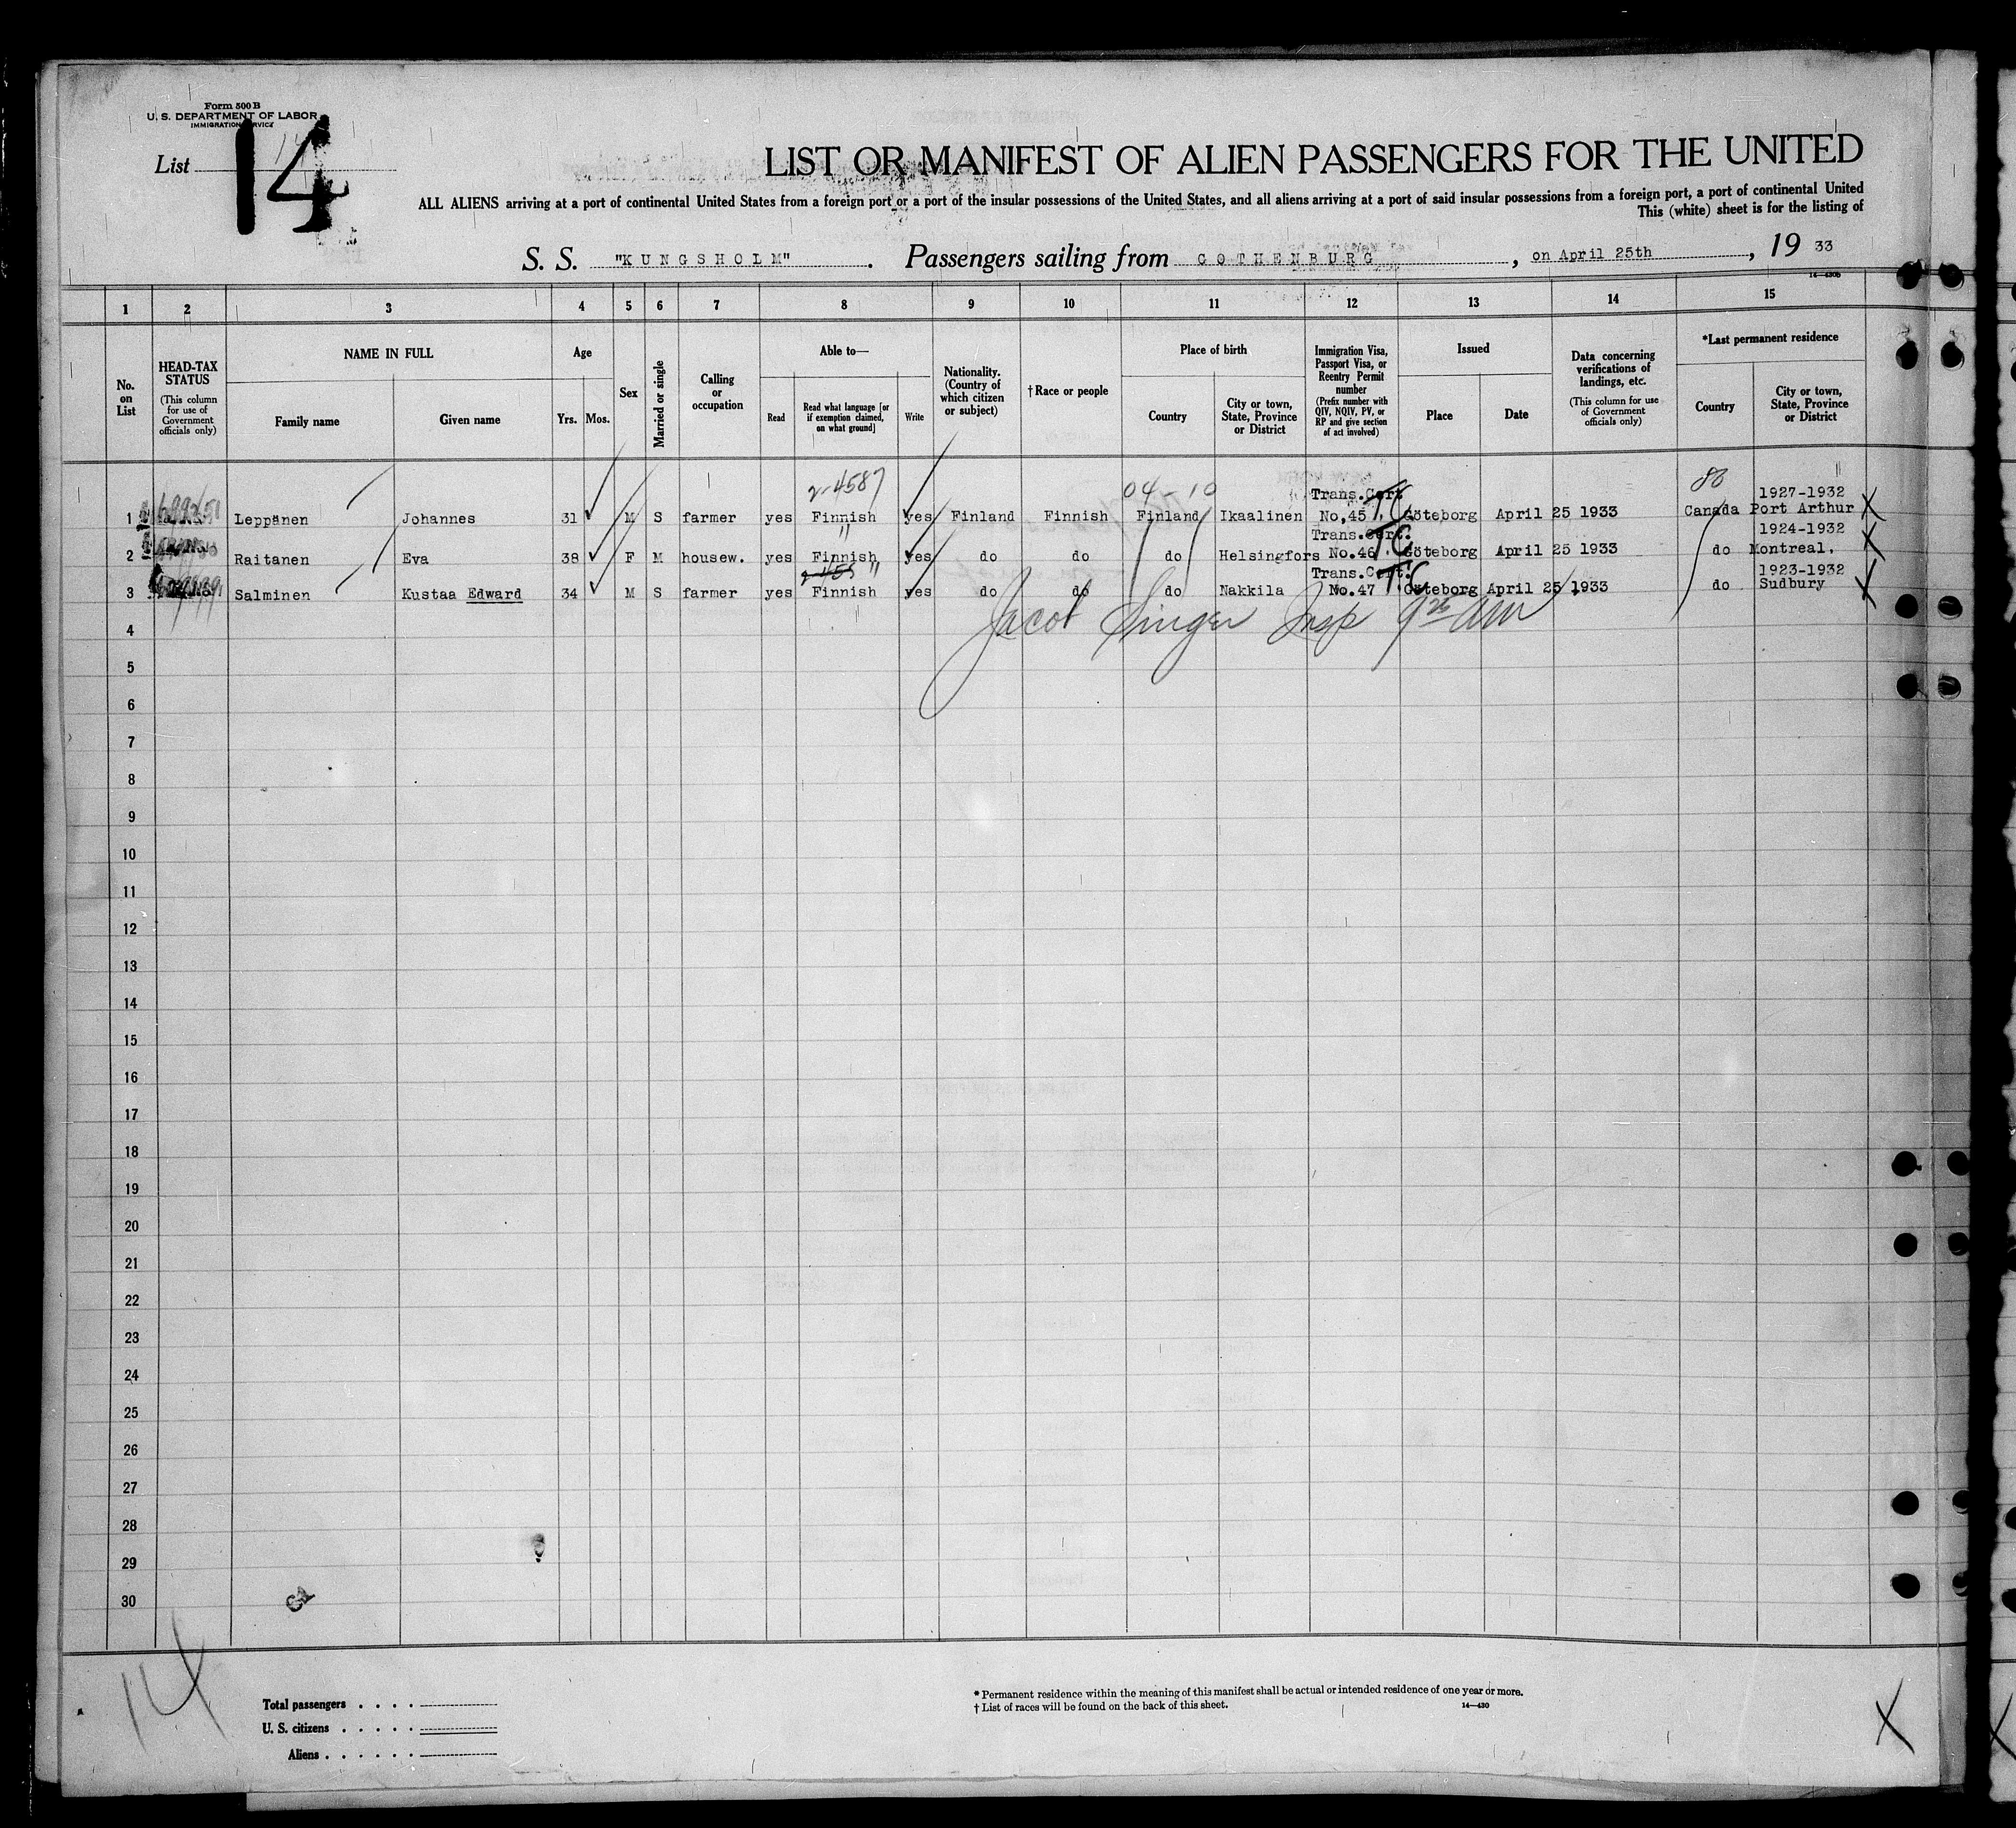 Form 500 B
U. S. DEPARTMENT OF LABOR
IMMIGRATION SERVICE
List 14
14
LIST OR MANIFEST OF ALIEN PASSENGERS FOR THE UNITED
ALL ALIENS arriving at a port of continental United States from a foreign port or a port of the insular possessions of the United States, and all aliens arriving at a port of said insular possessions from a foreign port, a port of continental United
This (white) sheet is for the listing of
S. S. "KUNGSHOLM". Passengers sailing from GOTHENBURG, on April 25th, 19 33
14—430b
1 2 3 4 5 6 7 8 9 10 11 12 13 14 15
No. on List
HEAD-TAX STATUS
(This column for use of Government officials only)
NAME IN FULL
Family name
Given name
Age
Yrs. Mos.
Sex
Married or single
Calling or occupation
Able to—
Read
Read what language [or if exemption claimed, on what ground]
Write
Nationality. (Country of which citizen or subject)
† Race or people
Place of birth
Country
City or town, State, Province or District
Immigration Visa, Passport Visa, or Reentry Permit number
(Prefix number with QIV, NQIV, PV, or RP and give section of act involved)
Issued
Place
Date
Data concerning verifications of landings, etc.
(This column for use of Government officials only)
*Last permanent residence
Country
City or town, State, Province or District
2-4587 04-10 Trans.Cert TC 80 1927-1932
1 Leppänen Johannes 31 M S farmer yes Finnish yes Finland Finnish Finland Ikaalinen No.45 Göteborg April 25 1933 Canada Port Arthur X
" Trans.Cert. TC 1924-1932
2 Raitanen Eva 38 F M housew. yes Finnish yes do do do Helsingfors No.46 Göteborg April 25 1933 do Montreal. X
2-455 " Trans.Cert. TC 1923-1932
3 Salminen Kustaa Edward 34 M S farmer yes Finnish yes do do do Nakkila No.47 Göteborg April 25 1933 do Sudbury X
Jacob Singer Insp 9 25 AM
4
5
6
7
8
9
10
11
12
13
14
15
16
17
18
19
20
21
22
23
24
25
26
27
28
29
30
14
Total passengers . . . .
U. S. citizens . . . . .
Aliens . . . . . .
* Permanent residence within the meaning of this manifest shall be actual or intended residence of one year or more.
† List of races will be found on the back of this sheet.
14—430
X